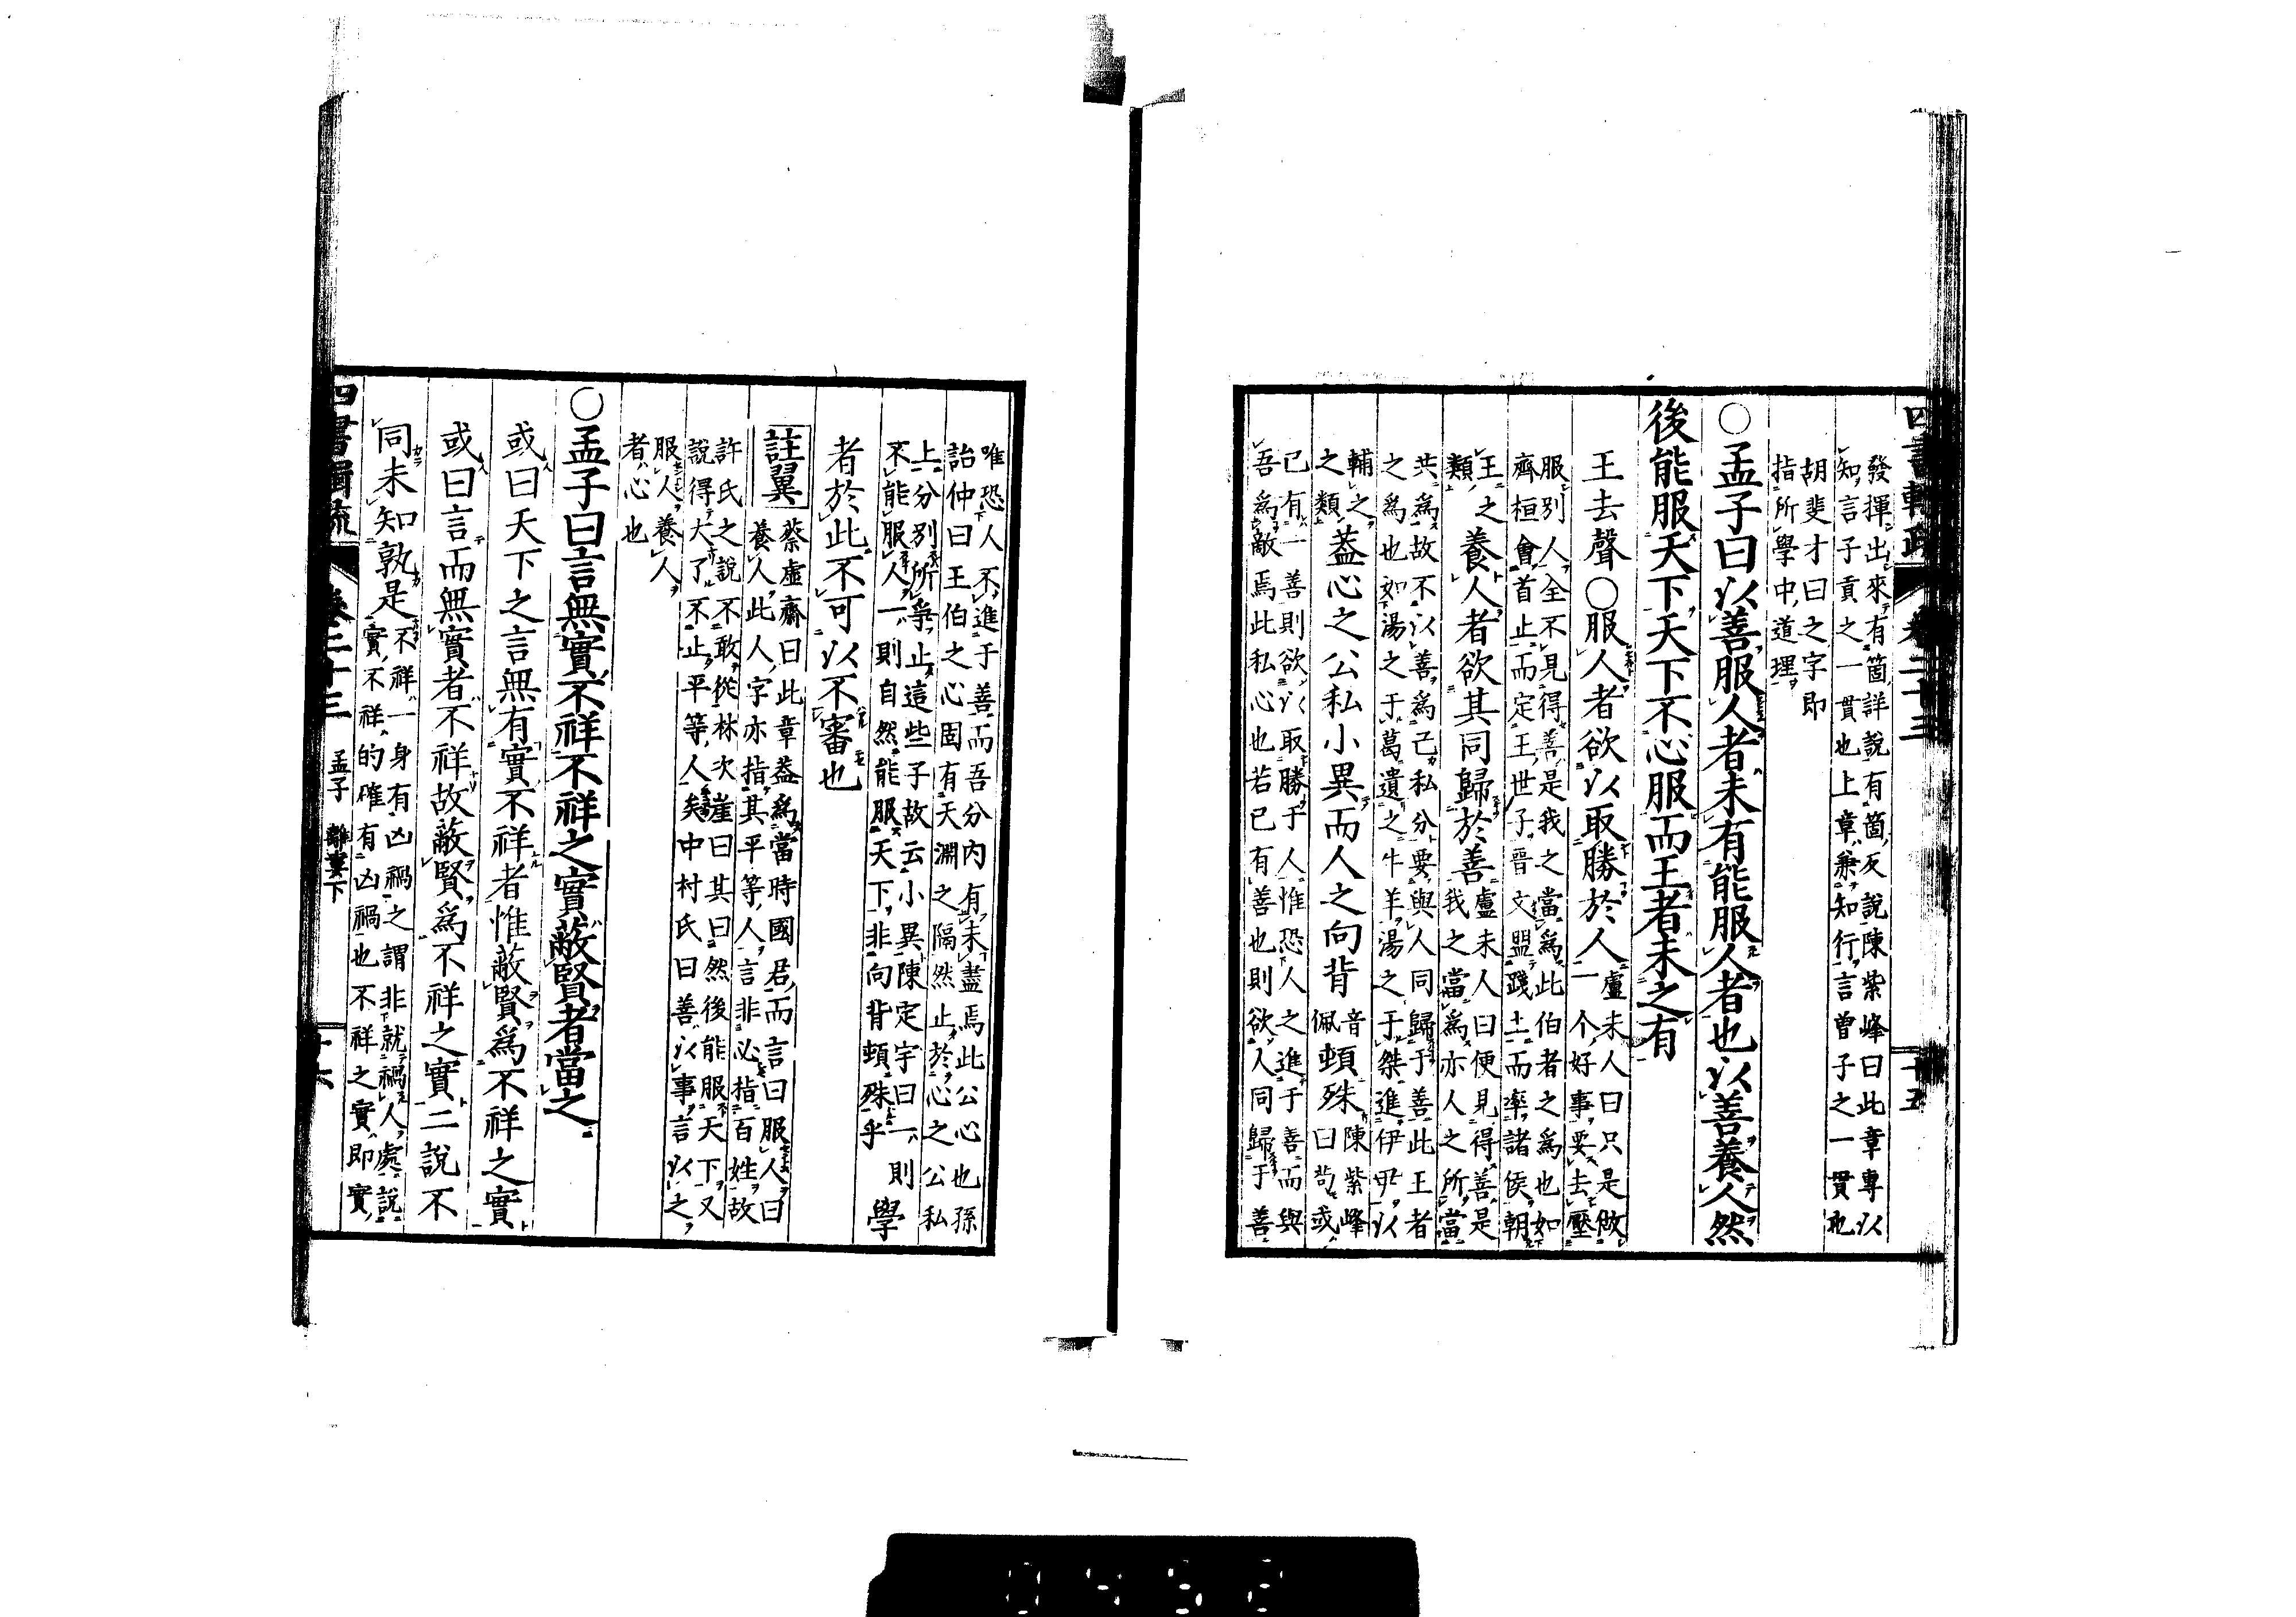 四書輯疏 卷二十三 十五
發揮出來有箇詳說有箇反說陳紫峰曰此章專以
知言子貢之一貫也上章兼知行言曾子之一貫也
胡斐才曰之字即
指所學中道理
○孟子曰以善服人者未有能服人者也以善養人然
後能服天下天下不心服而王者未之有
王去聲○服人者欲以取勝於人
盧未人曰只是做
一个好事要去壓
服別人全不見得善是我之當爲此伯者之爲也如
齊桓會首止而定王世子晉文盟踐土而率諸侯朝
王之
類
養人者欲其同歸於善
盧未人曰便見得善是
我之當爲亦人之所當
共爲故不以善爲己私分要與人同歸于善此王者
之爲也如湯之于葛遺之牛羊湯之于桀進伊尹以
輔之
之類
蓋心之公私小異而人之向背
音
佩
頓殊
陳紫峰
曰苟或
已有一善則欲以取勝于人惟恐人之進于善而與
吾爲敵焉此私心也若已有善也則欲人同歸于善
唯恐人不進于善而吾分內有未盡焉此公心也孫
詒仲曰王伯之心固有天淵之隔然止於心之公私
上分別所爭止這些子故云小異陳定宇曰一則
不能服人一則自然能服天下非向背頓殊乎
學
者於此不可以不審也
註翼
蔡虛齋曰此章蓋爲當時國君而言曰服人曰
養人此人字亦指其平等人言非必指百姓故
許氏之說不敢從林次崖曰其曰然後能服天下又
說得大了不止平等人矣中村氏曰善以事言以之
服人養人
者心也
○孟子曰言無實不祥不祥之實蔽賢者當之
或曰天下之言無有實不祥者惟蔽賢爲不祥之實
或曰言而無實者不祥故蔽賢爲不祥之實二說不
同未知孰是
不祥一身有凶禍之謂非就禍人處說
實不祥的確有凶禍也不祥之實即實
四書輯疏 卷二十三 孟子 離婁下 十六